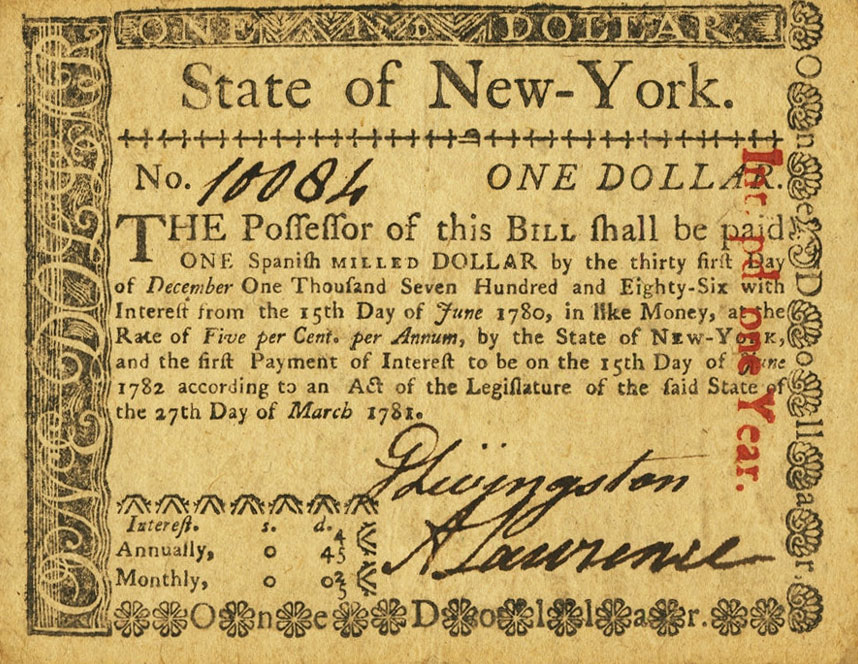 ONE DOLLAR.
State of New-York.
No. 10084 ONE DOLLAR.
THE Poſſeſſor of this BILL ſhall be paid
ONE Spaniſh MILLED DOLLAR by the thirty firſt Day
of December One Thouſand Seven Hundred and Eighty-Six with
Intereſt from the 15th Day of June 1780, in like Money, at the
Rate of Five per Cent. per Annum, by the State of NEW-YORK,
and the firſt Payment of Intereſt to be on the 15th Day of June
1782 according to an Act of the Legiſlature of the ſaid State of
the 27th Day of March 1781.
Livingston
A Lawrence
Intereſt. s. d.
Annually, 0 4 4/5
Monthly, 0 0 2/5
One Dollar.
One Dollar.
Int. pd. one Year.